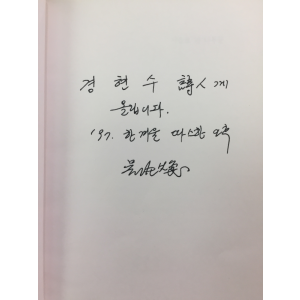 경 현 수 詩人 께
올립니다.
'97. 한겨울 따스한 오후